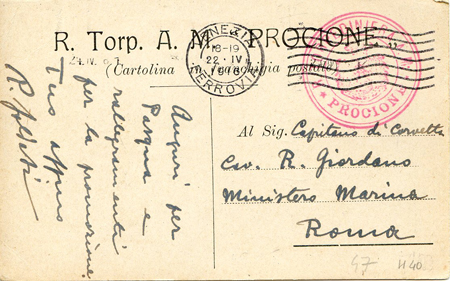 R. Torp. A. M. "PROCIONE"
(Cartolina in franchigia postale)
VENEZIA
18-19
22·IV
1916
FERROVIA
PROCIONE
Auguri per
Pasqua e
rallegramenti
per la promozione
Tuo affmo
Al Sig. Capitano di Corvetta
Cav. R. Giordano
Ministero Marina
Roma
47
1140